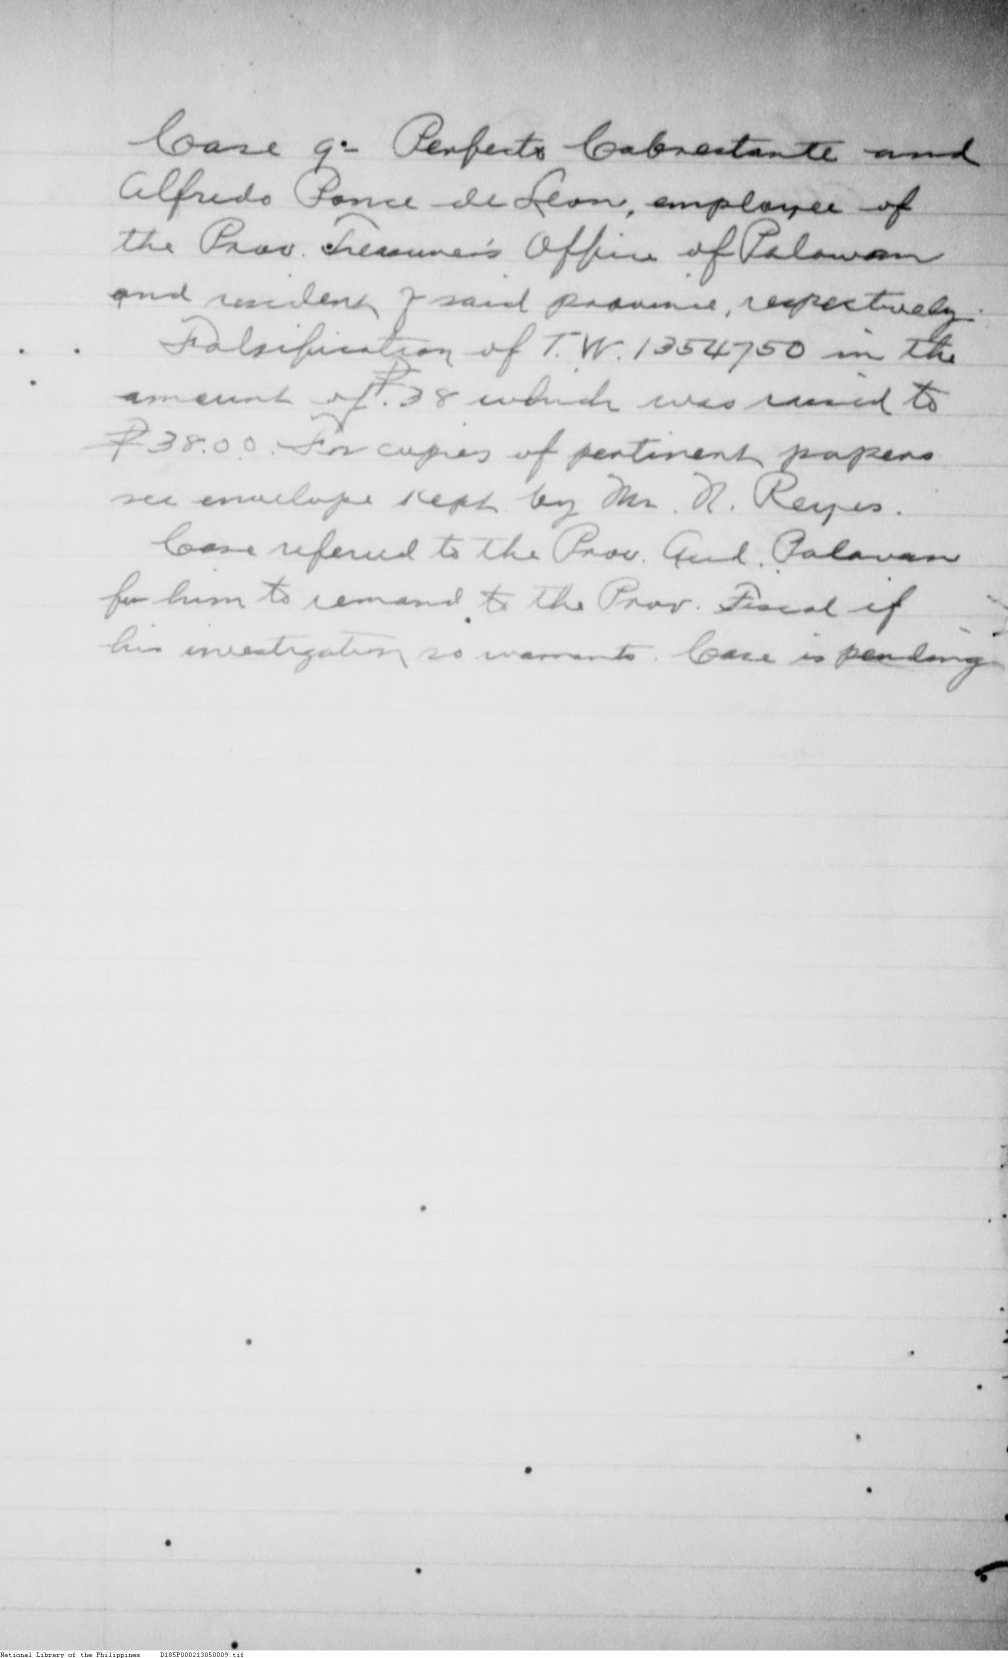 Case 9:- Perfecto Cabrestante and
Alfredo Ponce de Leon, employee of
the Prov. Treasurer's Office of Palawan
and resident of said province, respectively.
Falsification of T.W. 1354750 in the
amount of ₱.38 which was raised to
₱38.00. For copies of pertinent papers
see envelope kept by Mr. N. Reyes.
Case referred to the Prov. Aud. Palawan
for him to remand to the Prov. Fiscal if
his investigation so warrants. Case is pending
National Library of the Philippines D185P000213050009.tif